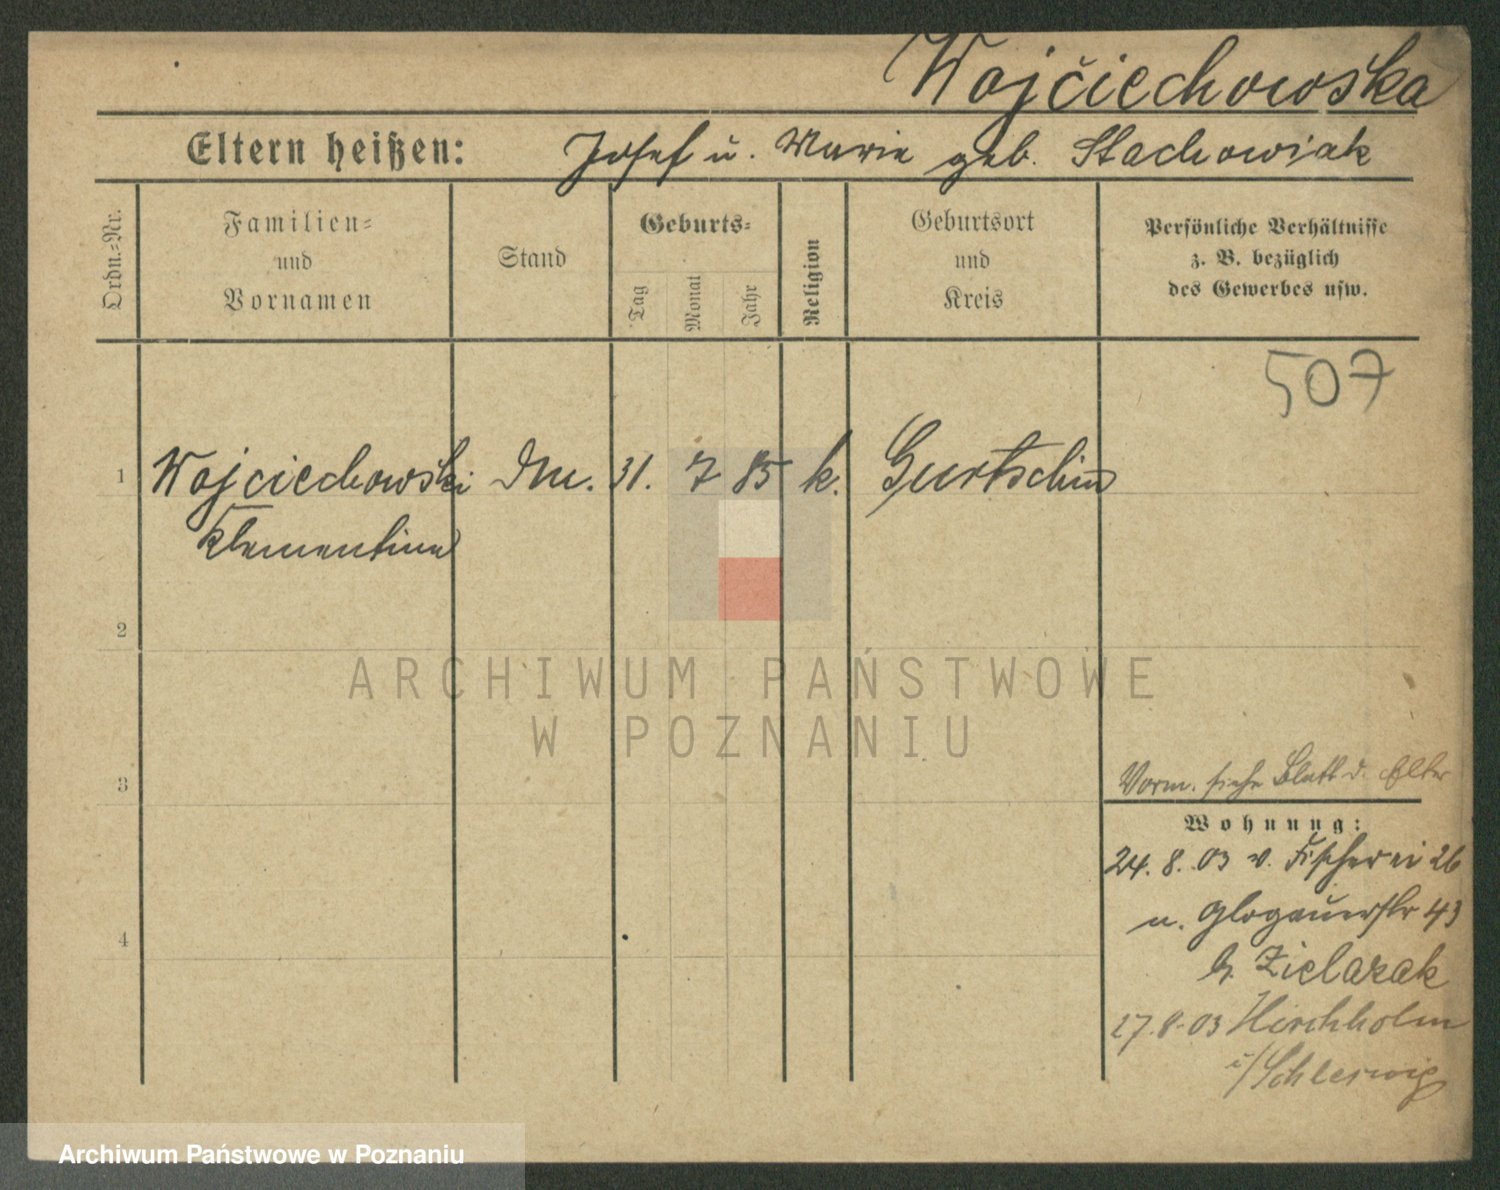 Wojciechowska
Eltern heißen: Josef u. Marie geb. Stachowiak
Ordn.-Nr.
Familien-
und
Vornamen
Stand
Geburts-
Tag
Monat
Jahr
Religion
Geburtsort
und
Kreis
Persönliche Verhältnisse
z. B. bezüglich
des Gewerbes usw.
507
1 Wojciechowski 31. 7 85 k. Gurtschin
Klementine
2
3
4
Vorm. siehe Blatt d. Elter
Wohnung:
24. 8. 03 v. Fischerei 26
n. Glogauerstr 43
b. Zielazak
27.8.03 Hirchholm
i/Schleswig
ARCHIWUM PAŃSTWOWE
W POZNANIU
Archiwum Państwowe w Poznaniu